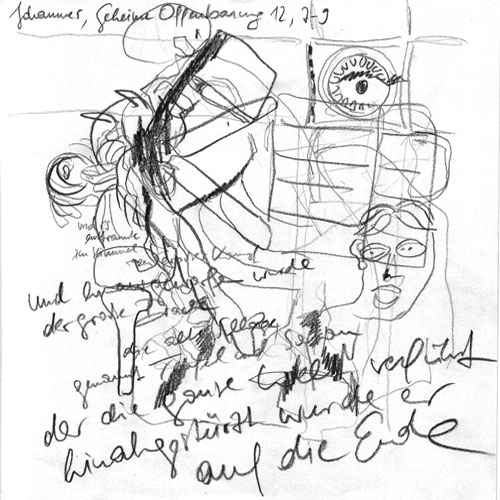 Johannes, Geheime Offenbarung 12, 7-9
und es
entbrannte
im Himmel
und hinausgeworfen wurde
der große Drache
die alte Schlange
genannt Teufel und Satan
der die ganze verführt
hinabgestürzt wurde er
auf die Erde